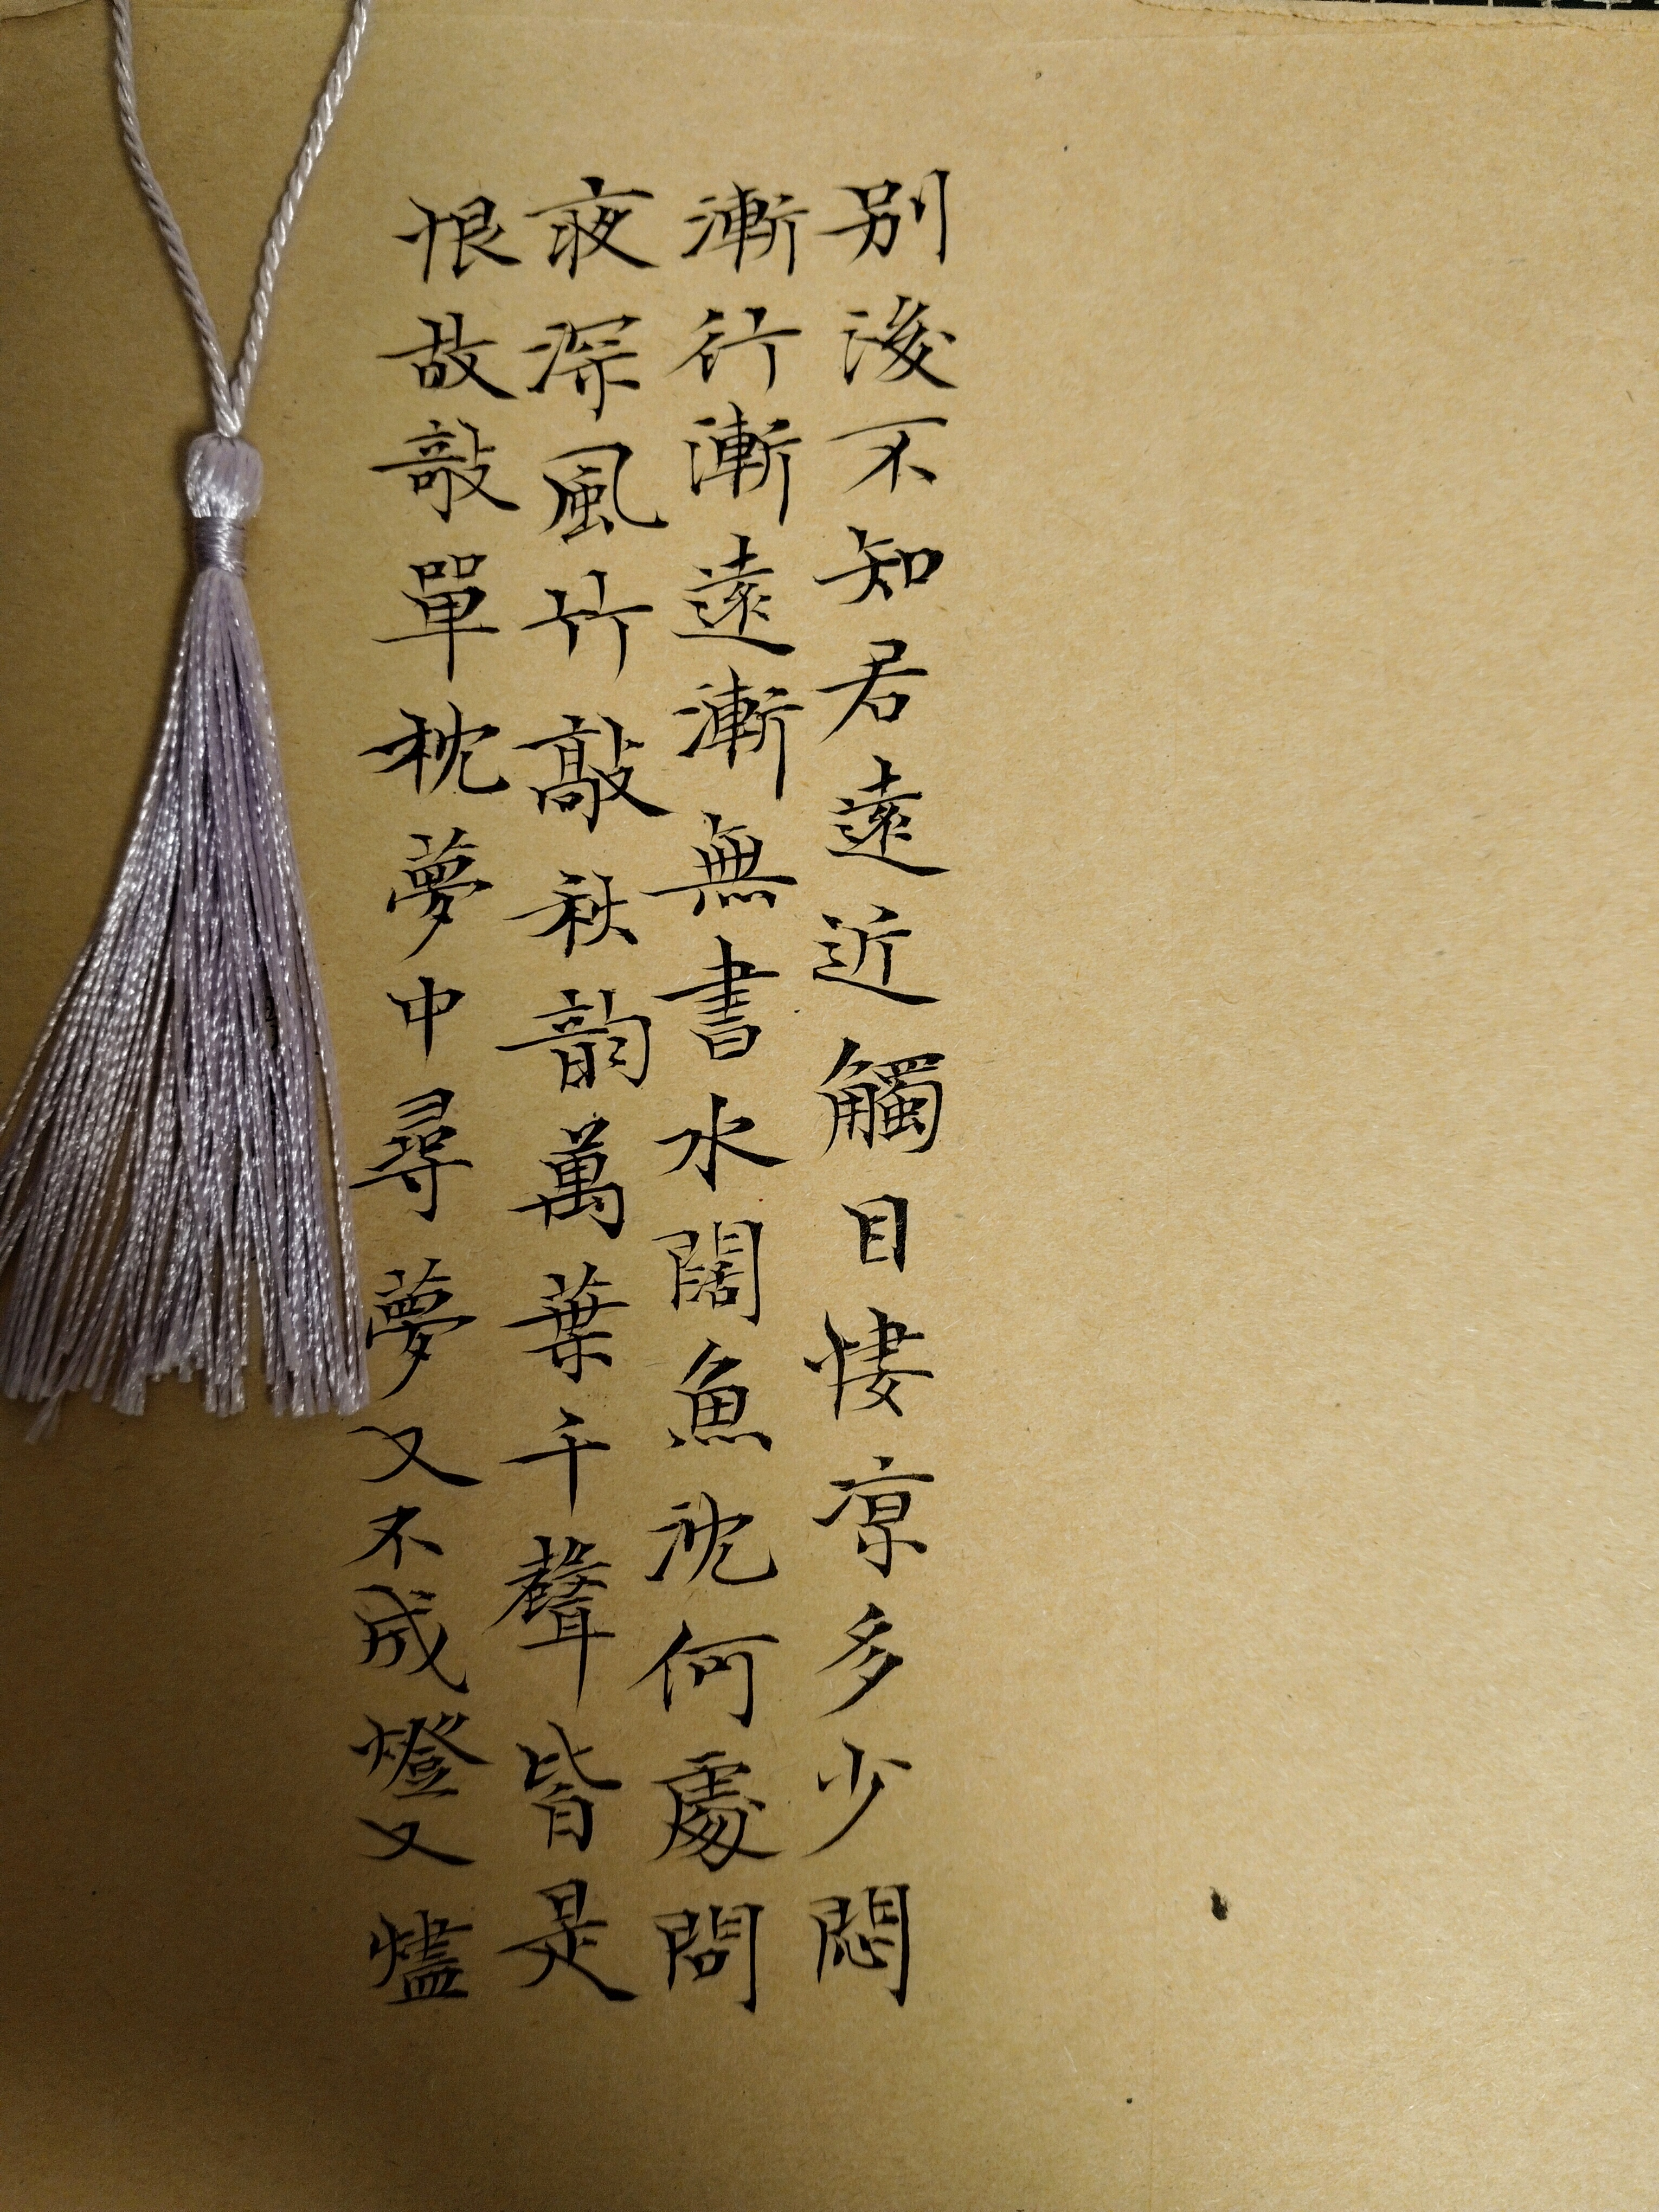 別後不知君遠近觸目悽涼多少悶
漸行漸遠漸無書水闊魚沈何處問
夜深風竹敲秋韵萬葉千聲皆是
恨故敲單枕夢中尋夢又不成燈又燼